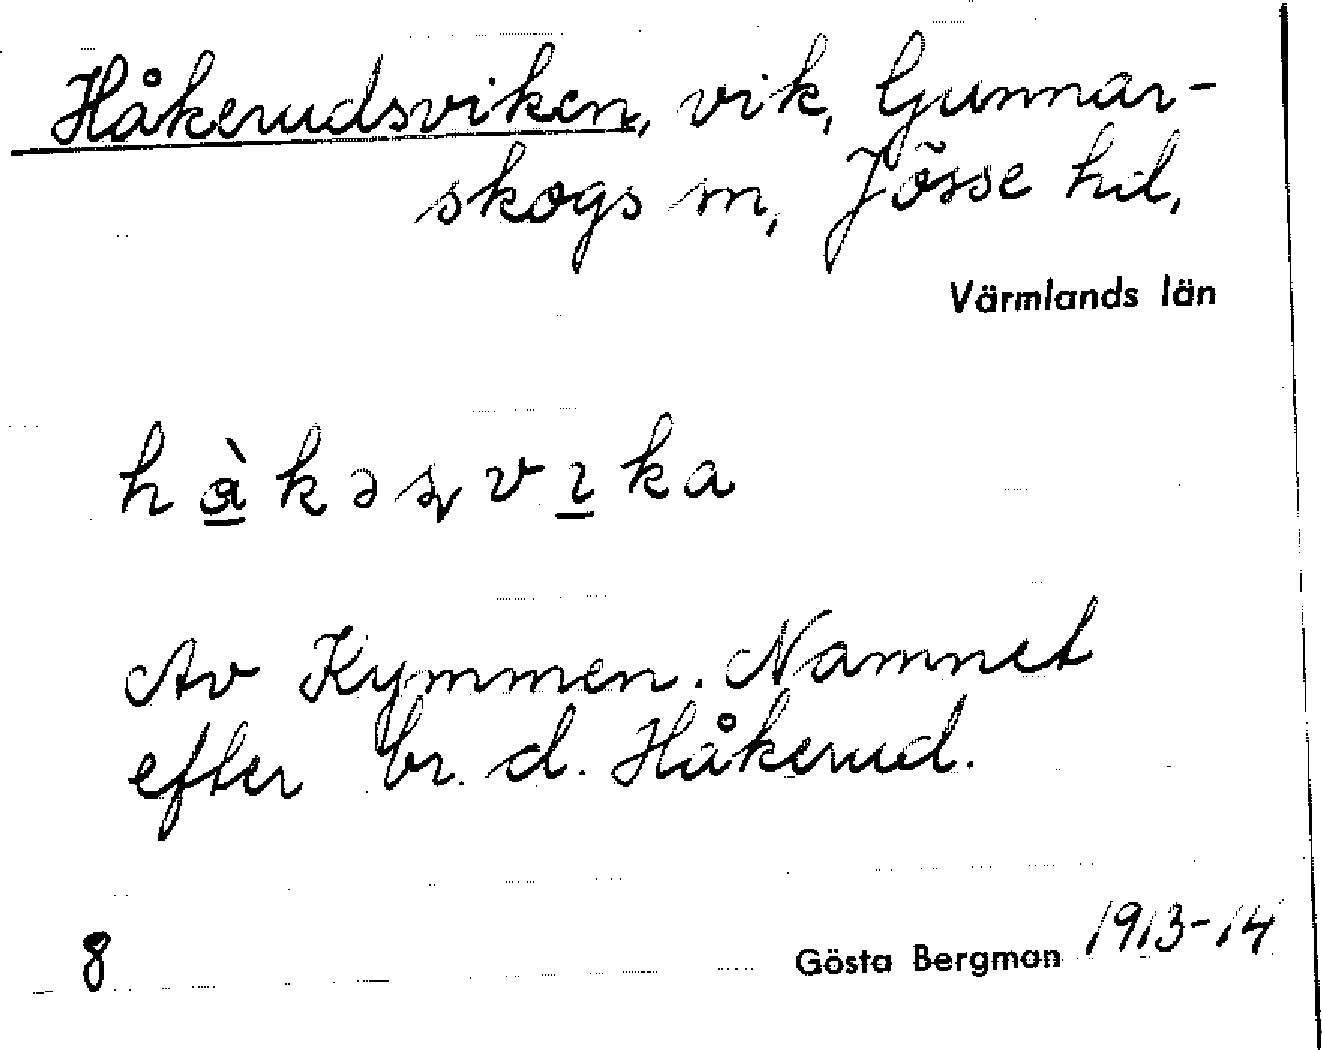 Håkerudsviken, vik, Gunnar-
skogs sn, Jösse hd,
Värmlands län
hàkəʂvɩka
Av Kymmen. Namnet
efter br. d. Håkerud.
8
Gösta Bergman 1913-14